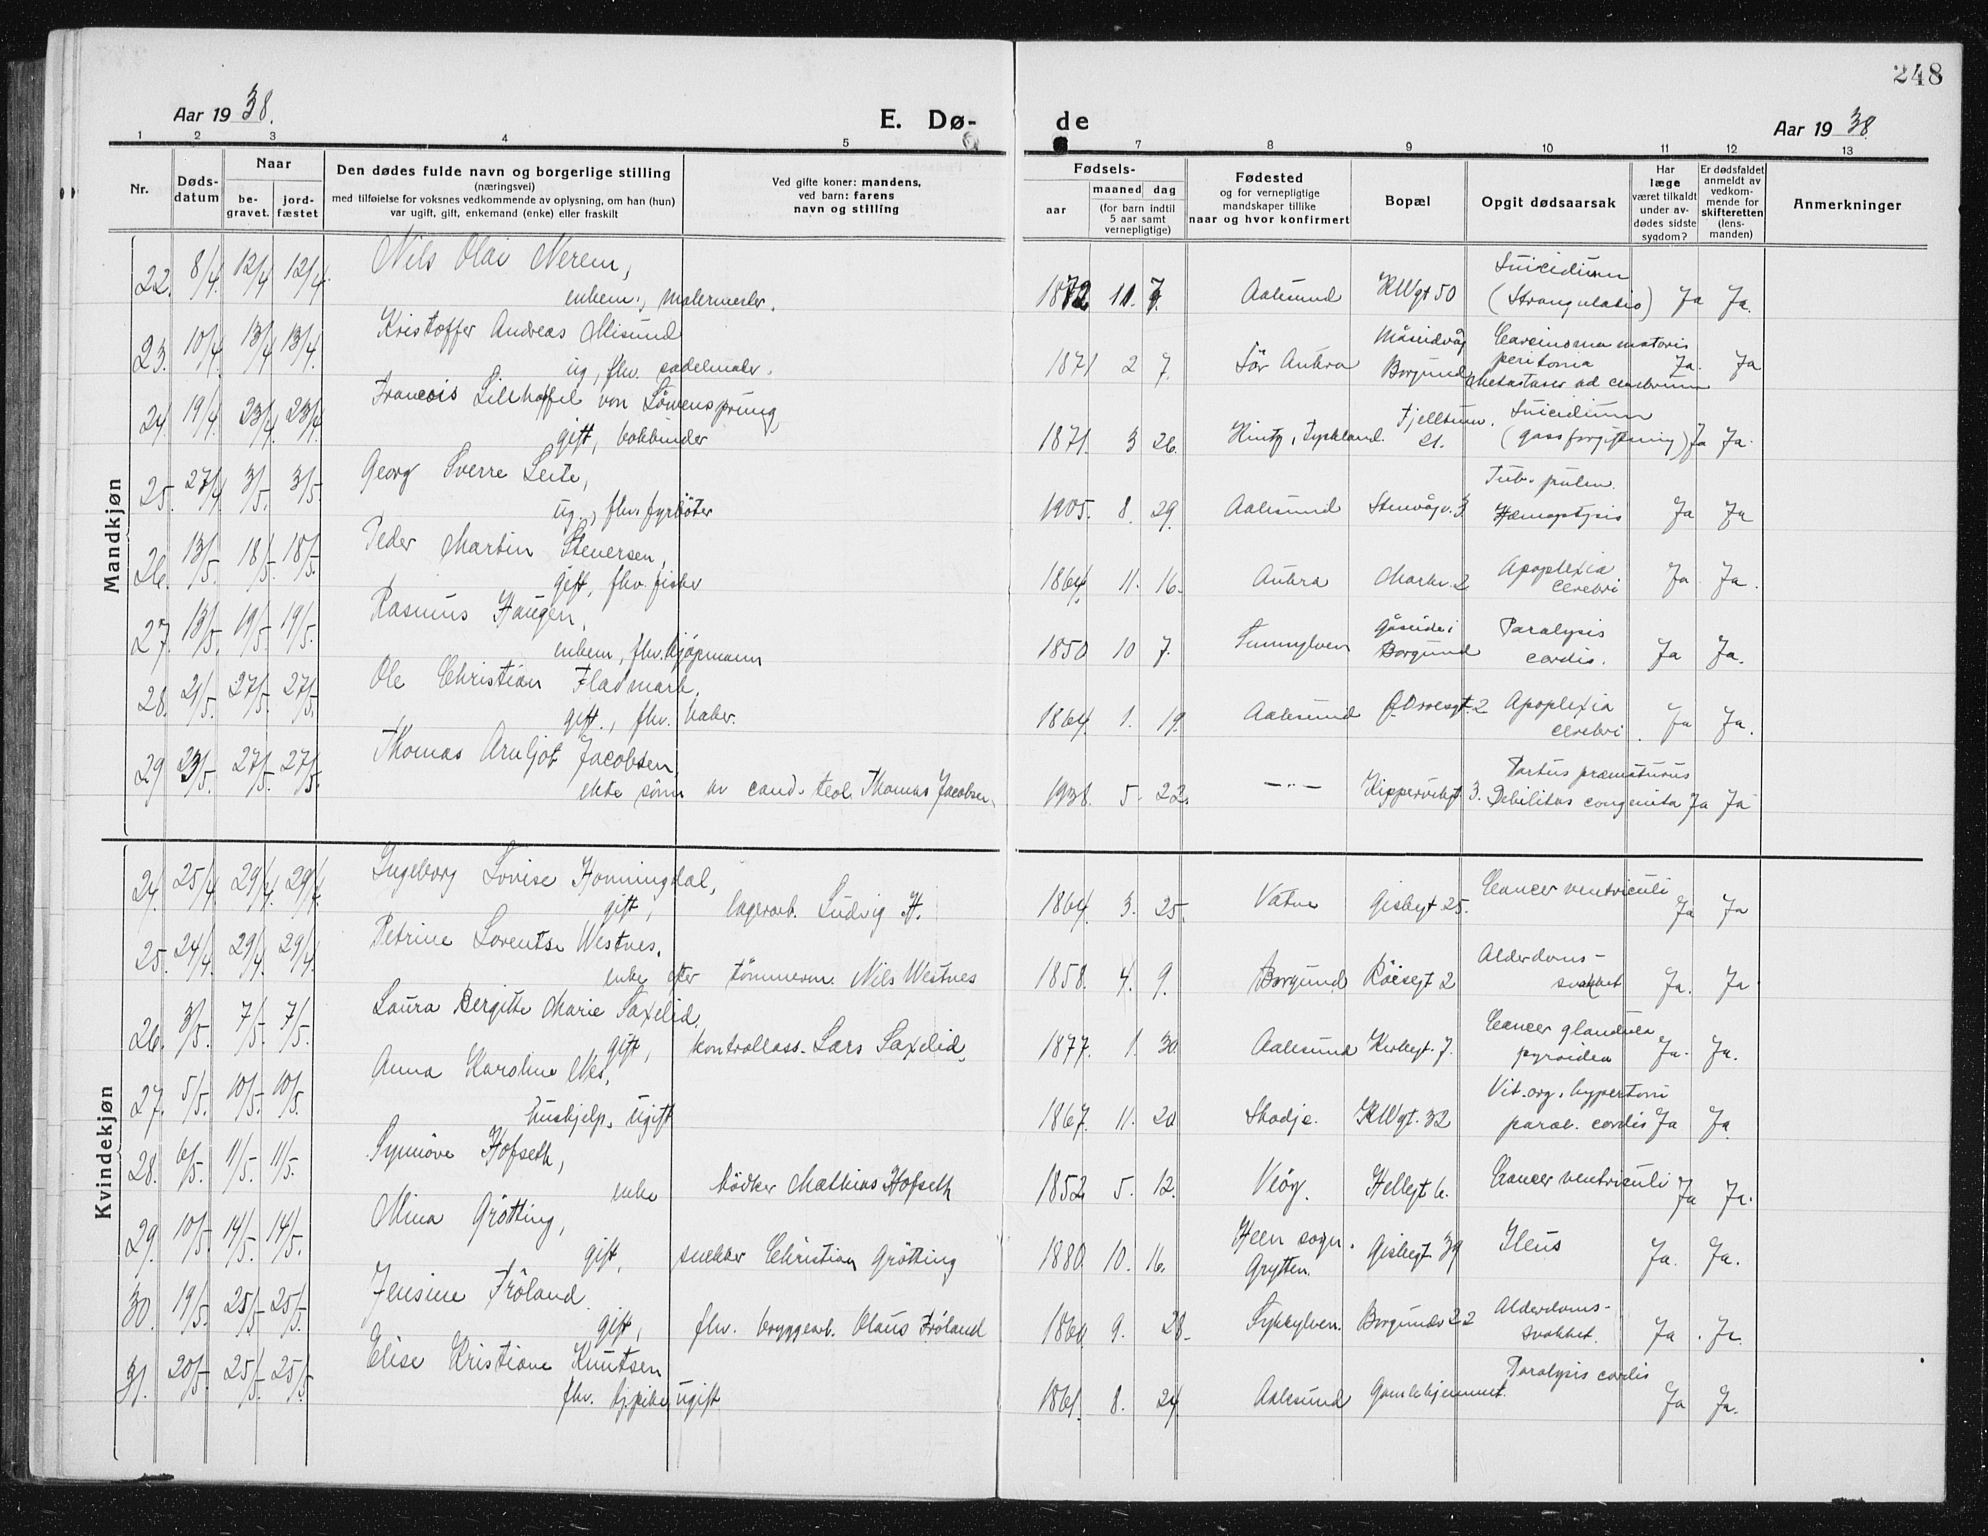 248
Aar 1938.
E. Dø-
de
Aar 1938
1 2 3 4 5 7 8 9 10 11 12 13
Nr.
Døds-
datum
Naar
be-
gravet.
jord-
fæstet
Den dødes fulde navn og borgerlige stilling
(næringsvei)
med tilføielse for voksnes vedkommende av oplysning, om han (hun)
var ugift, gift, enkemand (enke) eller fraskilt
Ved gifte koner: mandens,
ved barn: farens
navn og stilling
Fødsels-
aar
maaned dag
(for barn indtil
5 aar samt
vernepligtige)
Fødested
og for vernepligtige
mandskaper tillike
naar og hvor konfirmert
Bopæl
Opgit dødsaarsak
Har
læge
været tilkaldt
under av-
dødes sidste
sygdom?
Er dødsfaldet
anmeldt av
vedkom-
mende for
skifteretten
(lens-
manden)
Anmerkninger
Mandkjøn
22. 8/4. 12/4 12/4. Nils Olai Nerem,
enkem., malermester. 1872 11. 7. Aalesund KWgt 50 Suicidium
(Strangulatio) Ja Ja.
23. 10/4. 13/4 13/4. Kristoffer Andreas Misund
ug, fhv. sadelmaker. 1871 2 7. Sør Aukra Borgund Carcinoma
peritonia
Metastaser ad cerebrum Ja. Ja
24. 19/4. 23/4. 23/4 Francois Lillhoffel von Löwensprung,
gift, bokbinder 1871. 3 26. Tyskland. Fjelltunv.
21. Suicidium
(gassforgiftning) Ja Ja.
25. 27/4 3/5. 3/5. Georg Sverre Leite,
ug., fhv. fyrbøter 1905. 8. 29. Aalesund Stenvågv. 3 Tub. pulm.
Hæmoptysis Ja Ja
26. 13/5. 18/5. 18/5. Peder Martin Steversen,
gift, fhv. fisker 1864. 11. 16. Aukra Markv. 2 Apoplexia
cerebri Ja Ja.
27. 13/5. 19/5. 19/5. Rasmus Haugen,
enkem, fhv. kjøpmann 1850 10 7. Sunnylven Gåseide i
Borgund Paralysis
cordis. Ja Ja.
28. 21/5. 27/5. 27/5. Ole Christian Fladmark,
gift., fhv. baker. 1864. 1. 19. Aalesund Apoplexia
cerebri. Ja Ja.
29 23/5. 27/5. 27/5. Thomas Arnljot Jacobsen,
ekte sønn av cand. teol. Thomas Jacobsen. 1938. 5. 22. —"— Kippervikgt. 3. Partus præmaturus
Debilitas congenita Ja Ja
Kvindekjøn
24. 25/4 29/4. 29/4. Ingeborg Lovise Honningdal,
gift, lagerarb. Ludvig H. 1864. 3. 25. Vatne Giskegt 25. Cancer ventriculi Ja Ja
25. 24/4 29/4. 29/4. Petrine Lorentse Westnes.
enke efter tømmerm. Nils Westnes 1858. 4. 9. Borgund Røisegt 2 Alderdoms-
svakhet Ja. Ja
26. 3/5. 7/5. 7/5. Laura Bergitte Marie Saxelid,
gift, kontrollass. Lars Saxelid. 1877. 1. 30. Aalesund Kirkegt. 7. Cancer glandula
pyroidea Ja. Ja.
27. 5/5. 10/5. 10/5. Anna Karoline Nes,
hushjelp, ugift 1867. 11. 20 Skodje. KWgt. 32 Vit. org. hypertoni
paral. cordis Ja Ja
28. 6/5. 11/5. 11/5. Synnöve Hofseth,
enke bødker Mathias Hofseth 1852 5. 12. Veöy. Hellegt 6. Cancer ventriculi Ja Ja.
29. 10/5. 14/5. 14/5. Mina Grötting,
gift, snekker Christian Grötting 1880. 10. 16. Heen sogn.
Grytten. Giskegt 39 Ileus Ja. Ja.
30. 19/5. 25/5. 25/5. Jensine Fröland.
gift, fhv. bryggearb. Claus Fröland 1860. 9. 28. Sykkylven. Borgundv 22 Alderdoms-
svakhet. Ja. Ja.
31. 20/5. 25/5. 25/5. Elise Kristiane Knutsen
fhv. tjpike, ugift 1861. 8. 24 Aalesund Gamlehjemmet. Paralysis cordis Ja Ja.